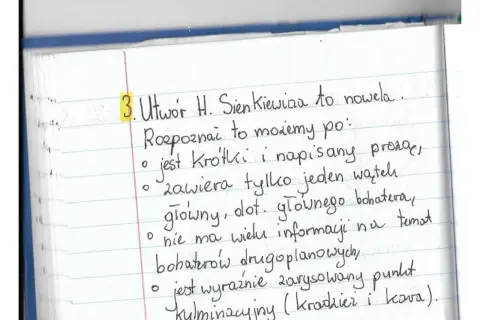 3. Utwór H. Sienkiewicza to nowela.
Rozpoznać to możemy po:
• jest krótki i napisany prozą,
• zawiera tylko jeden wątek
główny, dot. głównego bohatera,
• nie ma wielu informacji na temat
bohaterów drugoplanowych,
• jest wyraźnie zarysowany punkt
kulminacyjny (kradzież i kara).